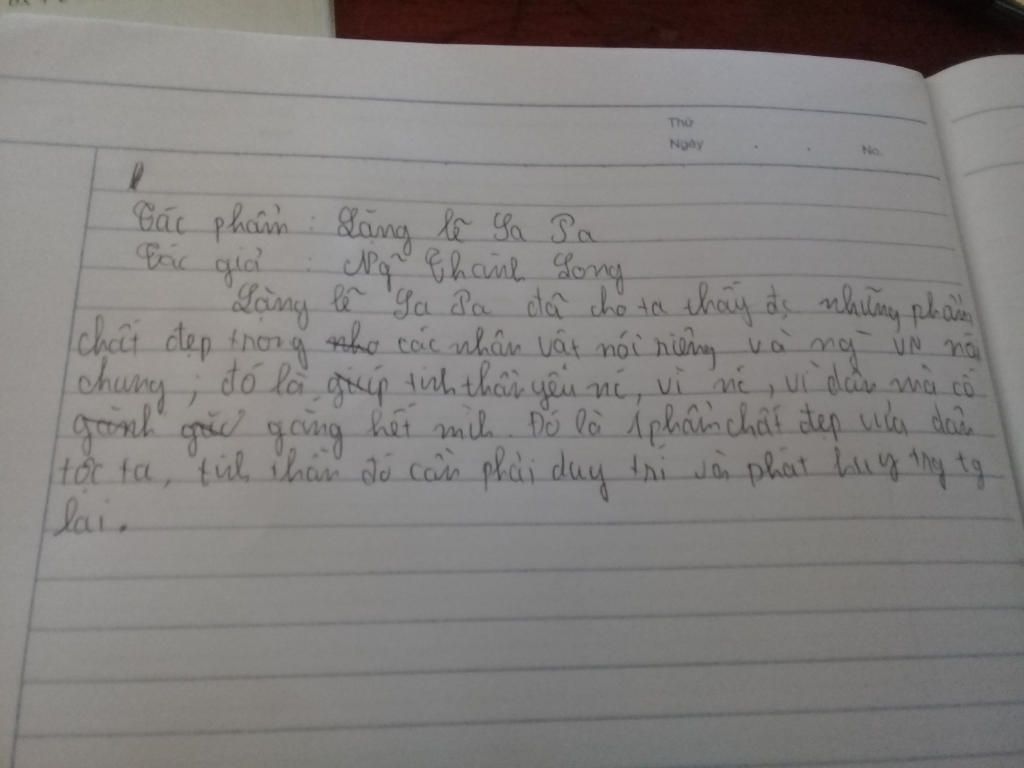 Thứ
Ngày . . No.
Tác phẩm : Lặng lẽ Sa Pa
Tác giả : Ngỹ Thành Long
Lặng lẽ Sa Pa đã cho ta thấy đc những phẩm
chất đẹp trong các nhân vật nói riêng và ng VN nói
chung ; đó là tinh thần yêu nc, vì nc, vì dân mà cố
gắng hết mình. Đó là 1 phẩm chất đẹp của dân
tộc ta, tinh thần đó cần phải duy trì và phát huy trg tg
lai.